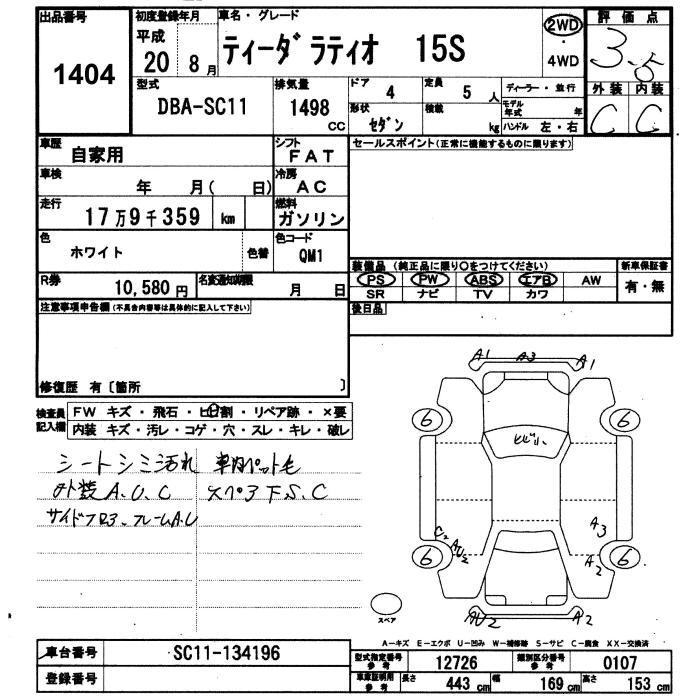 出品番号
1404
初度登録年月
平成
20 8 月
車名・グレード
ティーダ ラティオ 15S
2WD
・
4WD
評価点
3.5
外装 内装
C C
型式
DBA-SC11
排気量
1498
CC
ドア
4
定員
5 人
形状
セダン
積載
kg
ディーラー・並行
モデル
年式
年
ハンドル 左・右
車歴
自家用
シフト
FAT
車検
年 月( 日)
冷房
AC
走行
17万9千359 km
燃料
ガソリン
色
ホワイト
色替
色コード
QM1
R券
10,580 円
名変通知期限
月 日
セールスポイント(正常に機能するものに限ります)
装備品 (純正品に限り〇をつけてください)
新車保証書
PS PW ABS エアB AW
有・無
SR ナビ TV カワ
後日品
注意事項申告欄(不具合内容等は具体的に記入して下さい)
修復歴 有〔箇所 〕
検査員
記入欄
FW キズ・飛石・ヒビ割・リペア跡・×要
内装 キズ・汚レ・コゲ・穴・スレ・キレ・破レ
シートシミ汚れ 車内ペット毛
外装A.U.C スペアF.S.C
A1 A3 A1
6 6
ヒビル
C2 AU2
A3
A2
6 6
AU2 A2
スペア
A―キズ E―エクボ U―凹み W―補修跡 S―サビ C―腐食 XX―交換済
車台番号
SC11-134196
登録番号
型式指定番号
参考
12726
類別区分番号
参考
0107
車庫証明用
参考
長さ
443 cm
幅
169 cm
高さ
153 cm